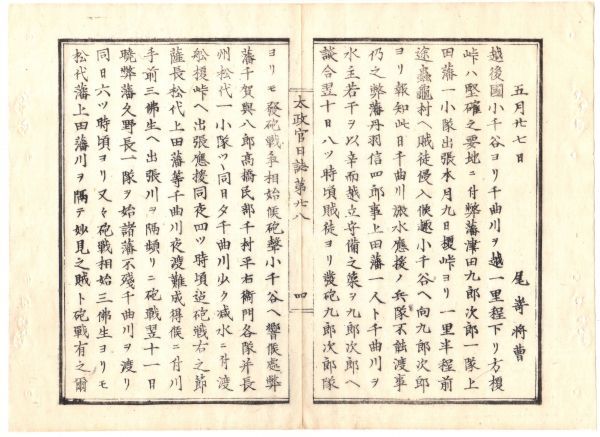 五月廿七日
尾嵜将曹
越後國小千谷ヨリ千曲川ヲ越一里程下リ方榎
峠ハ堅確之要地ニ付弊藩津田九郎次郎一隊上
田藩一小隊出張本月九日榎峠ヨリ一里半程前
途蟲龜村ヘ賊徒侵入候趣小千谷ヘ向九郎次郎
ヨリ報知此日千曲川漲水應援ノ兵隊不能渡事
仍之弊藩丹羽信四郎事上田藩一人ト千曲川ヲ
水主若干ヲ以辛而越立守備之策ヲ九郎次郎ヘ
談合翌十日八ツ時頃賊徒ヨリ發砲九郎次郎隊
太政官日誌第廿八
四
ヨリモ發砲戦争相始候砲聲小千谷ヘ響候處弊
藩千賀與八郎髙橋民部千村平右衛門各隊并長
州松代一小隊ツヽ同日夕千曲川少ク減水ニ付渡
舩榎峠ヘ出張應援同夜四ツ時頃迠砲戦右之節
薩長松代上田藩等千曲川夜渡難成得候ニ付川
手前三佛生ヘ出張川ヲ隔頻リニ砲戦翌十一日
暁弊藩久野長一隊ヲ始諸藩不残千曲川ヲ渡リ
同日六ツ時頃ヨリ又々砲戦相始三佛生ヨリモ
松代藩上田藩川ヲ隔テ妙見之賊ト砲戦有之爾